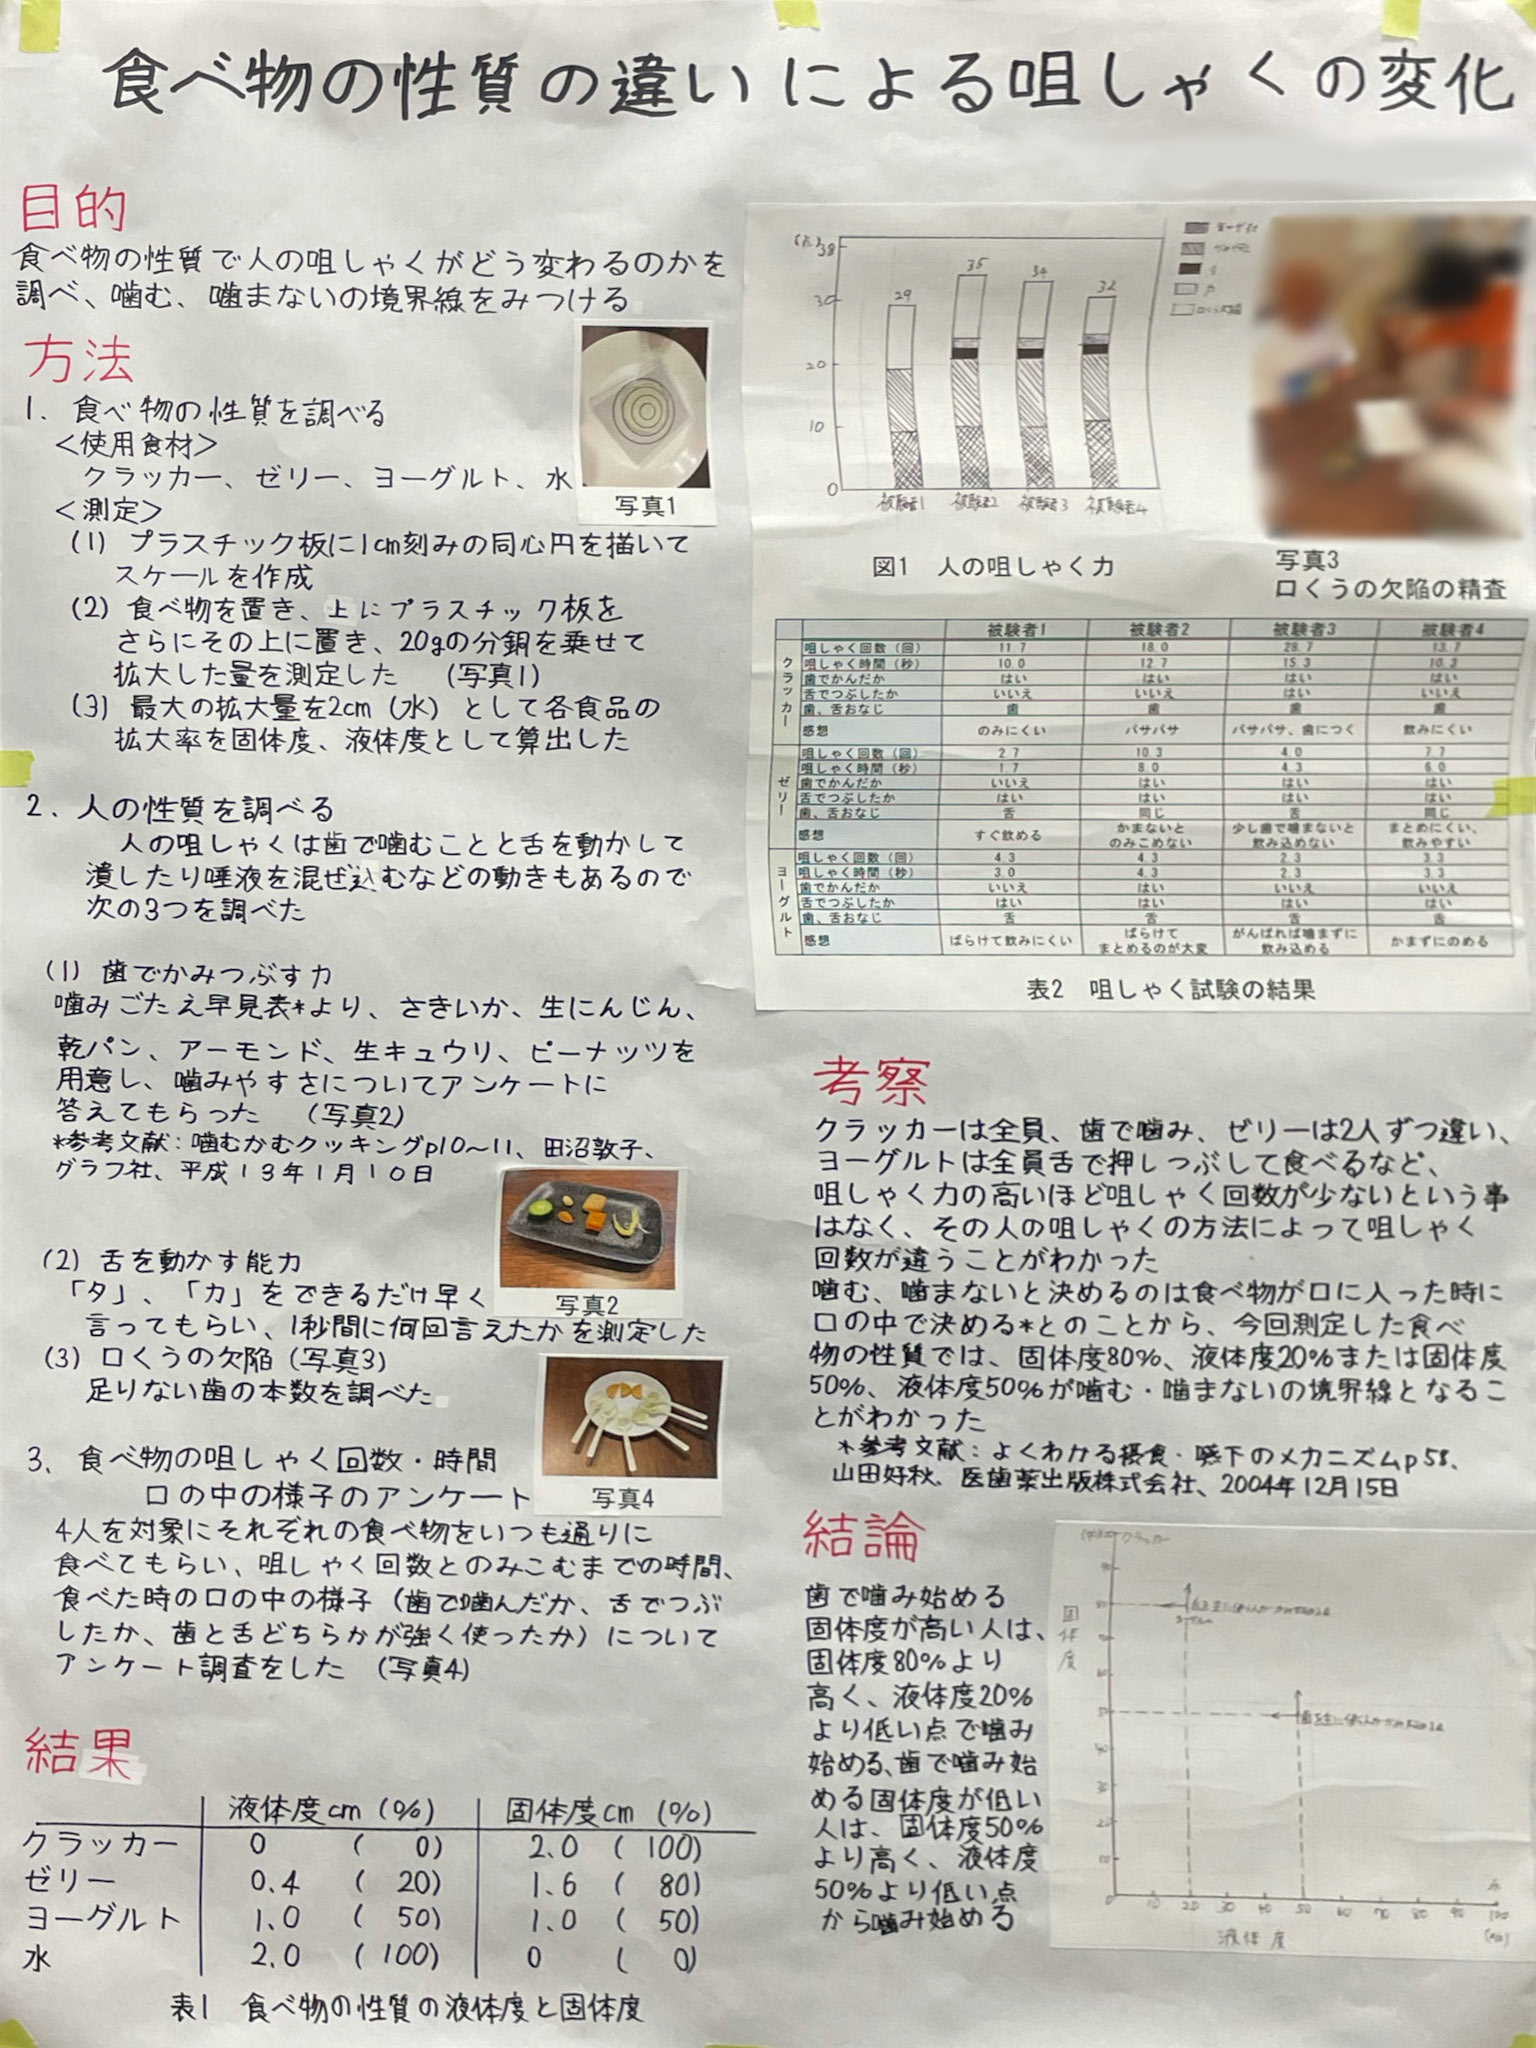 食べ物の性質の違いによる咀しゃくの変化
目的
食べ物の性質で人の咀しゃくがどう変わるのかを
調べ、噛む、噛まないの境界線をみつける
方法
1. 食べ物の性質を調べる
<使用食材>
クラッカー、ゼリー、ヨーグルト、水
<測定>
(1) プラスチック板に1cm刻みの同心円を描いて
スケールを作成
(2) 食べ物を置き、上にプラスチック板を
さらにその上に置き、20gの分銅を乗せて
拡大した量を測定した (写真1)
(3) 最大の拡大量を2cm (水) として各食品の
拡大率を固体度、液体度として算出した
写真1
2. 人の性質を調べる
人の咀しゃくは歯で噛むことと舌を動かして
潰したり唾液を混ぜ込むなどの動きもあるので
次の3つを調べた
(1) 歯でかみつぶす力
噛みごたえ早見表*より、さきいか、生にんじん、
乾パン、アーモンド、生キュウリ、ピーナッツを
用意し、噛みやすさについてアンケートに
答えてもらった (写真2)
*参考文献:噛むかむクッキングp10~11、田沼敦子、
グラフ社、平成13年1月10日
(2) 舌を動かす能力
「タ」、「カ」をできるだけ早く
言ってもらい、1秒間に何回言えたかを測定した
写真2
(3) 口くうの欠陥 (写真3)
足りない歯の本数を調べた
3. 食べ物の咀しゃく回数・時間
口の中の様子のアンケート
写真4
4人を対象にそれぞれの食べ物をいつも通りに
食べてもらい、咀しゃく回数とのみこむまでの時間、
食べた時の口の中の様子 (歯で噛んだか、舌でつぶ
したか、歯と舌どちらかが強く使ったか) について
アンケート調査をした (写真4)
結果
液体度cm (%) 固体度cm (%)
クラッカー 0 ( 0) 2.0 (100)
ゼリー 0.4 ( 20) 1.6 ( 80)
ヨーグルト 1.0 ( 50) 1.0 ( 50)
水 2.0 (100) 0 ( 0)
表1 食べ物の性質の液体度と固体度
38
30
20
10
0
29 35 34 32
被験者1 被験者2 被験者3 被験者4
図1 人の咀しゃく力
写真3
口くうの欠陥の精査
被験者1 被験者2 被験者3 被験者4
クラッカー
咀しゃく回数 (回) 11.7 18.0 28.7 13.7
咀しゃく時間 (秒) 10.0 12.7 15.3 10.3
歯でかんだか はい はい はい はい
舌でつぶしたか いいえ いいえ はい いいえ
歯、舌おなじ 歯 歯 歯 歯
感想 のみにくい パサパサ パサパサ、歯につく 飲みにくい
ゼリー
咀しゃく回数 (回) 2.7 10.3 4.0 7.7
咀しゃく時間 (秒) 1.7 8.0 4.3 6.0
歯でかんだか いいえ はい はい はい
舌でつぶしたか はい はい はい はい
歯、舌おなじ 舌 同じ 舌 同じ
感想 すぐ飲める かまないとのみこめない 少し歯で噛まないと飲み込めない まとめにくい、飲みやすい
ヨーグルト
咀しゃく回数 (回) 4.3 4.3 2.3 3.3
咀しゃく時間 (秒) 3.0 4.3 2.3 3.3
歯でかんだか いいえ はい いいえ いいえ
舌でつぶしたか はい はい はい はい
歯、舌おなじ 舌 舌 舌 舌
感想 ばらけて飲みにくい ばらけてまとめるのが大変 がんばれば噛まずに飲み込める かまずにのめる
表2 咀しゃく試験の結果
考察
クラッカーは全員、歯で噛み、ゼリーは2人ずつ違い、
ヨーグルトは全員舌で押しつぶして食べるなど、
咀しゃく力の高いほど咀しゃく回数が少ないという事
はなく、その人の咀しゃくの方法によって咀しゃく
回数が違うことがわかった
噛む、噛まないと決めるのは食べ物が口に入った時に
口の中で決める*とのことから、今回測定した食べ
物の性質では、固体度80%、液体度20%または固体度
50%、液体度50%が噛む・噛まないの境界線となるこ
とがわかった
*参考文献:よくわかる摂食・嚥下のメカニズムp58、
山田好秋、医歯薬出版株式会社、2004年12月15日
結論
歯で噛み始める
固体度が高い人は、
固体度80%より
高く、液体度20%
より低い点で噛み
始める、歯で噛み始
める固体度が低い
人は、固体度50%
より高く、液体度
50%より低い点
から噛み始める
クラッカー
固体度
0 10 20 30 40 50 60 70 80 90 100
水
液体度
(%)